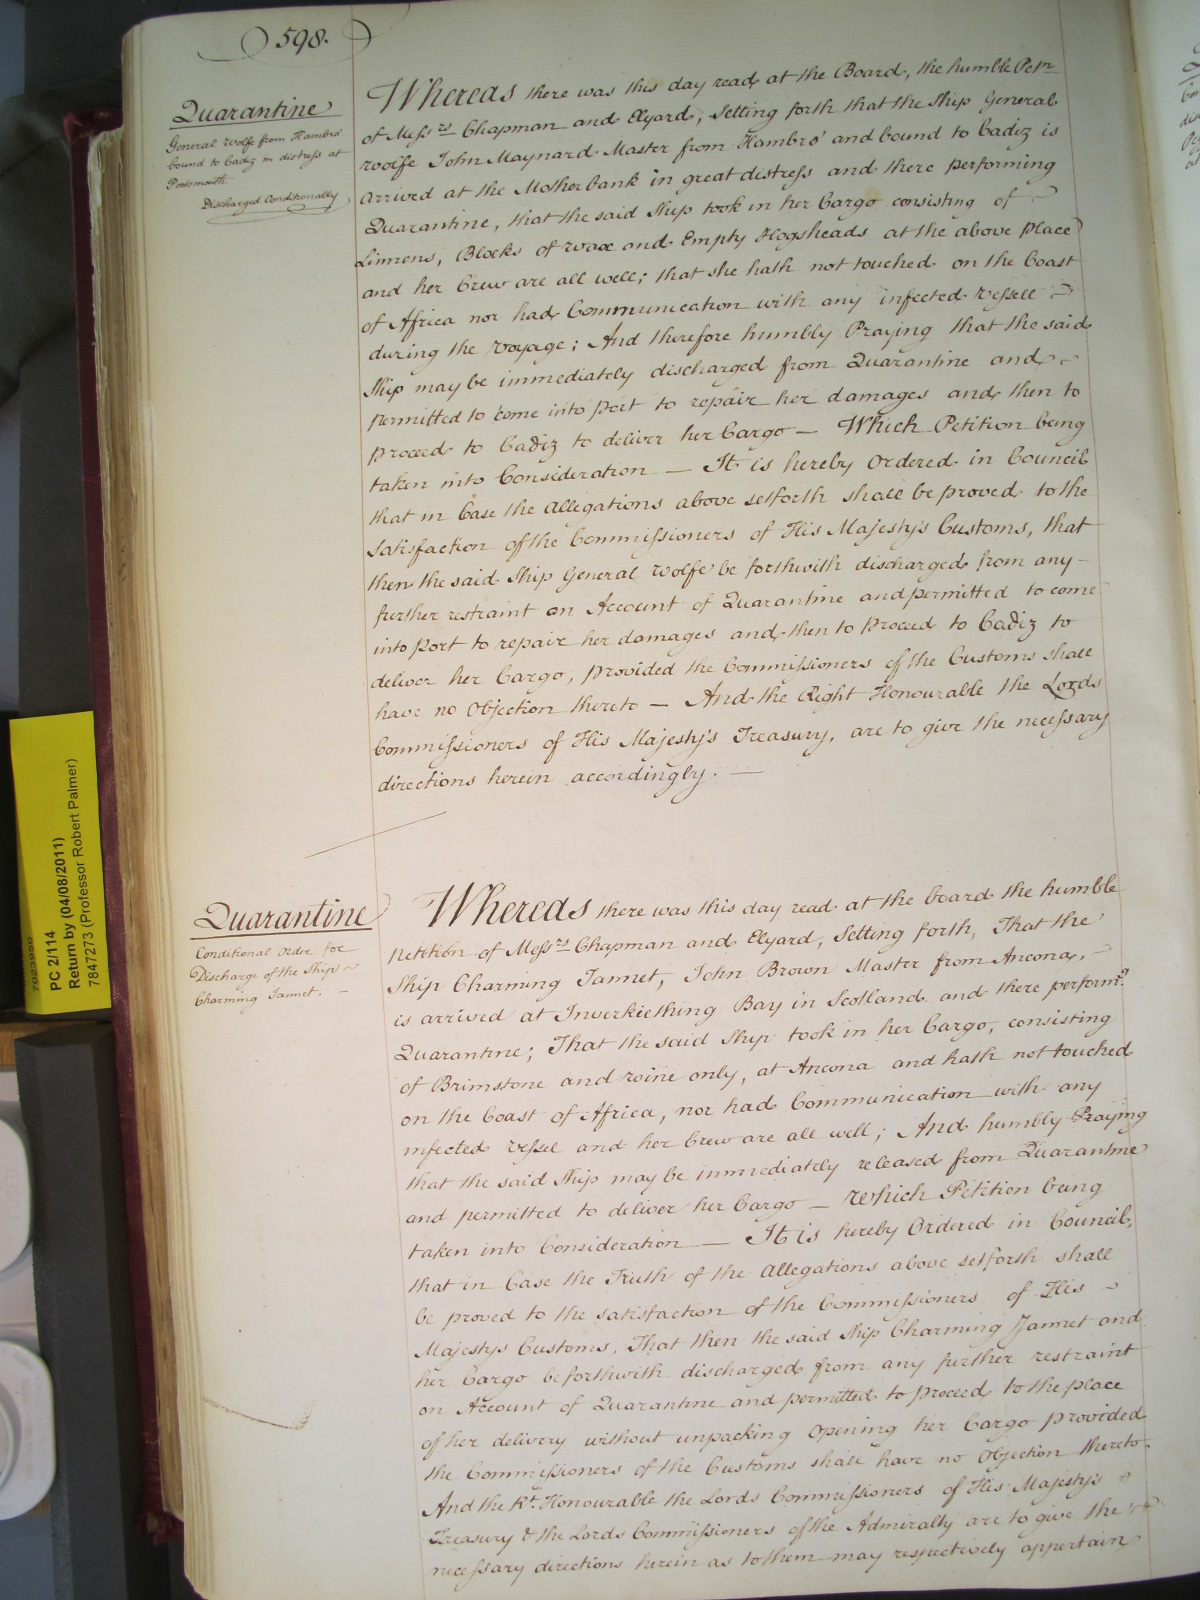 598.
Quarantine
General Wolfe from Hambro'
bound to Cadiz in distress at
Portsmouth
Discharged Conditionally
Whereas there was this day read at the Board, the humble Petn
of Messrs Chapman and Elyard, Setting forth that the Ship General
Wolfe John Maynard Master from Hambro' and bound to Cadiz is
arrived at the Motherbank in great distress and there performing
Quarantine, that the said Ship took in her Cargo consisting of
Linnens, Blocks of Wax and Empty Hogsheads at the above place
and her Crew are all well; that she hath not touched on the Coast
of Africa nor had Communication with any infected Vessell
during the Voyage; And therefore humbly Praying that the said
Ship may be immediately discharged from Quarantine and
permitted to come into Port to repair her damages and then to
proceed to Cadiz to deliver her Cargo — Which Petition being
taken into Consideration — It is hereby Ordered in Council
that in Case the Allegations above setforth shall be proved to the
Satisfaction of the Commissioners of His Majesty's Customs, that
then the said Ship General Wolfe be forthwith discharged from any
further restraint on Account of Quarantine and permitted to come
into Port to repair her damages and then to Proceed to Cadiz to
deliver her Cargo, provided the Commissioners of the Customs shall
have no Objection thereto — And the Right Honourable the Lords
Commissioners of His Majesty's Treasury, are to give the necessary
directions herein accordingly. —
Quarantine
Conditional Order for
Discharge of the Ship
Charming Jannet. —
Whereas there was this day read at the board the humble
Petition of Messrs Chapman and Elyard, Setting forth, That the
Ship Charming Jannet, John Brown Master from Ancona,
is arrived at Inverkiething Bay in Scotland and there performg
Quarantine; That the said Ship took in her Cargo, consisting
of Brimstone and Wine only, at Ancona and hath not touched
on the Coast of Africa, nor had Communication with any
infected Vessel and her Crew are all well; And humbly Praying
that the said Ship may be immediately released from Quarantine
and permitted to deliver her Cargo — Which Petition being
taken into Consideration — It is hereby Ordered in Council,
that in Case the Truth of the Allegations above setforth shall
be proved to the satisfaction of the Commissioners of His
Majestys Customs, That then the said Ship Charming Jannet and
her Cargo be forthwith discharged from any further restraint
on Account of Quarantine and permitted to proceed to the place
of her delivery without unpacking Opening her Cargo provided
the Commissioners of the Customs shall have no Objection thereto.
And the Rt. Honourable the Lords Commissioners of His Majesty's
Treasury & the Lords Commissioners of the Admiralty are to give the
necessary directions herein as to them may respectively appertain
PC 2/114
Return by (04/08/2011)
7847273 (Professor Robert Palmer)